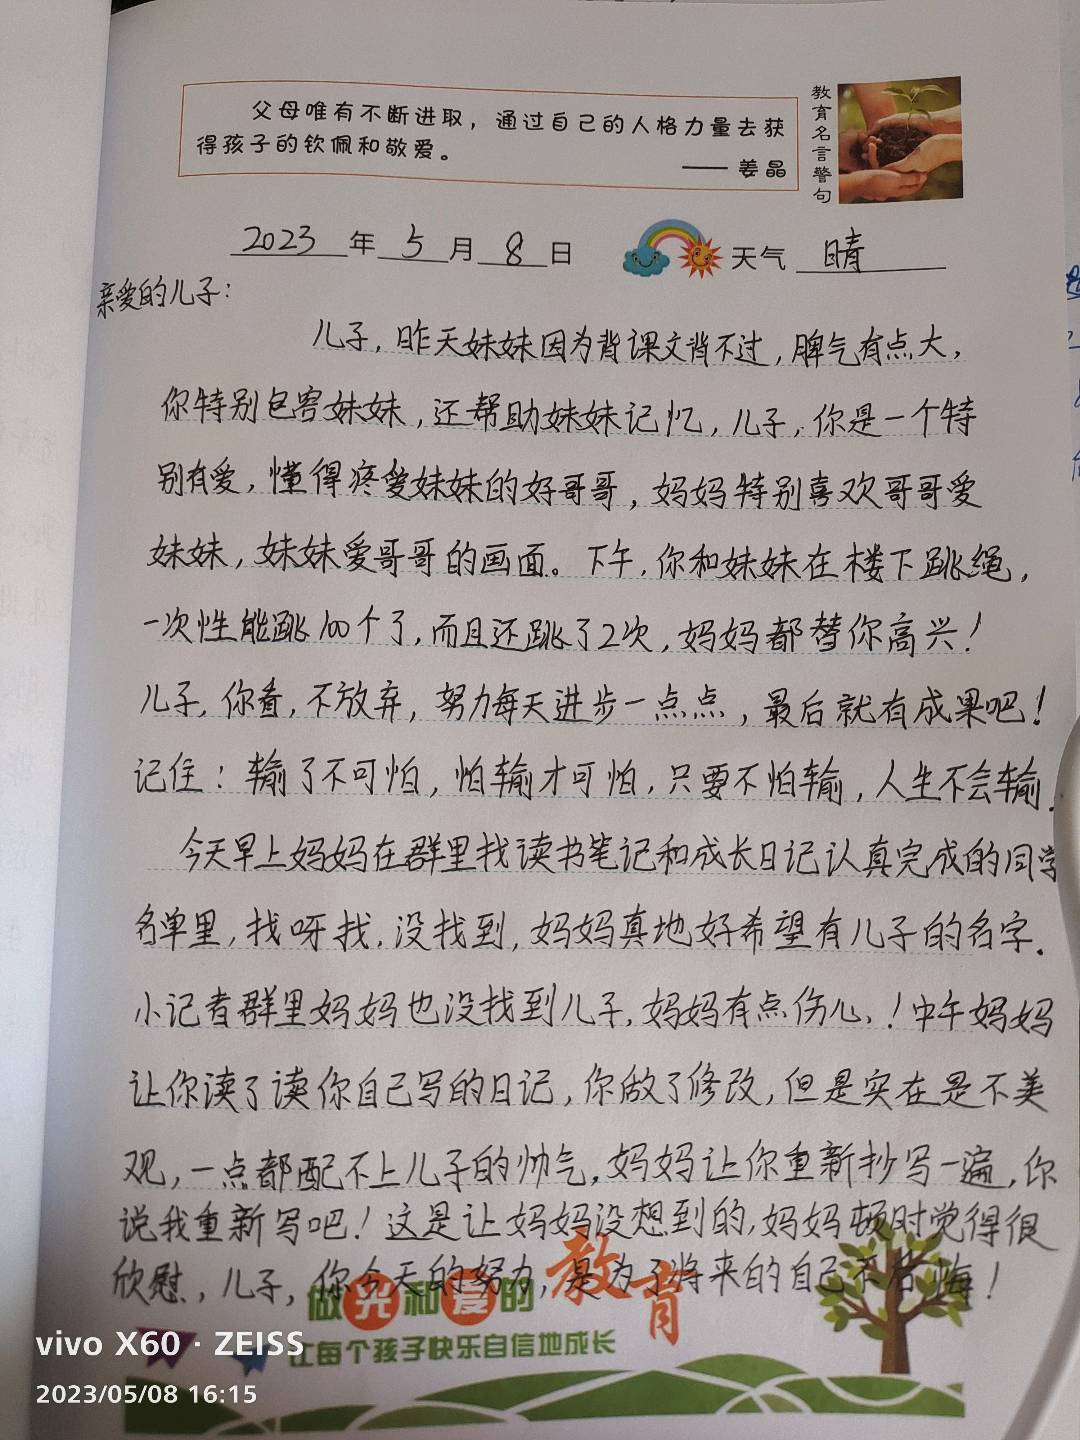 父母唯有不断进取，通过自己的人格力量去获
得孩子的钦佩和敬爱。
—— 姜晶
教育名言警句
2023年5月8日 天气 晴
亲爱的儿子：
儿子，昨天妹妹因为背课文背不过，脾气有点大，
你特别包容妹妹，还帮助妹妹记忆，儿子，你是一个特
别有爱，懂得疼爱妹妹的好哥哥，妈妈特别喜欢哥哥爱
妹妹，妹妹爱哥哥的画面。下午，你和妹妹在楼下跳绳，
一次性能跳100个了，而且还跳了2次，妈妈都替你高兴！
儿子，你看，不放弃，努力每天进步一点点，最后就有成果吧！
记住：输了不可怕，怕输才可怕，只要不怕输，人生不会输。
今天早上妈妈在群里找读书笔记和成长日记认真完成的同学
名单里，找呀找，没找到，妈妈真地好希望有儿子的名字．
小记者群里妈妈也没找到儿子，妈妈有点伤心，！中午妈妈
让你读了读你自己写的日记，你做了修改，但是实在是不美
观，一点都配不上儿子的帅气，妈妈让你重新抄写一遍，你
说我重新写吧！这是让妈妈没想到的，妈妈顿时觉得很
欣慰，儿子，你今天的努力，是为了将来的自己不后悔！
做光和爱的教育
让每个孩子快乐自信地成长
vivo X60 · ZEISS
2023/05/08 16:15